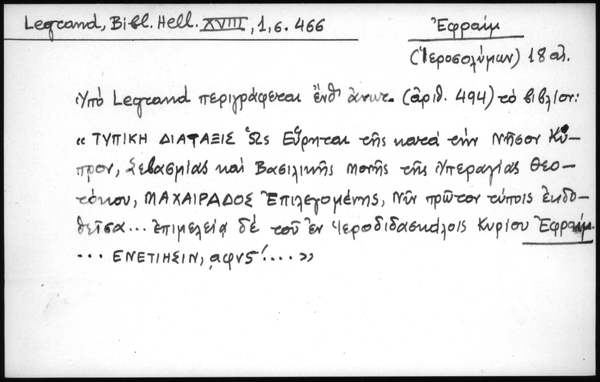 Legrand, Bibl. Hell. XVIII, 1, σ. 466
Ἐφραίμ
(Ἱεροσολύμων) 18 αἰ.
Ὑπὸ Legrand περιγράφεται ἔνθ' ἀνωτ. (ἀριθ. 494) τὸ βιβλίον:
« ΤΥΠΙΚΗ ΔΙΑΤΑΞΙΣ Ὡς Εὕρηται τῆς κατὰ τὴν Νῆσον Κύ-
προν, Σεβασμίας καὶ Βασιλικῆς Μονῆς τῆς Ὑπεραγίας Θεο-
τόκου, ΜΑΧΑΙΡΑΔΟΣ Ἐπιλεγομένης, Νῦν πρῶτον τύποις ἐκδο-
θεῖσα... ἐπιμελείᾳ δὲ τοῦ ἐν Ἱεροδιδασκάλοις Κυρίου Ἐφραίμ.
... ΕΝΕΤΙΗΣΙΝ, ͵αψνς΄!.... »